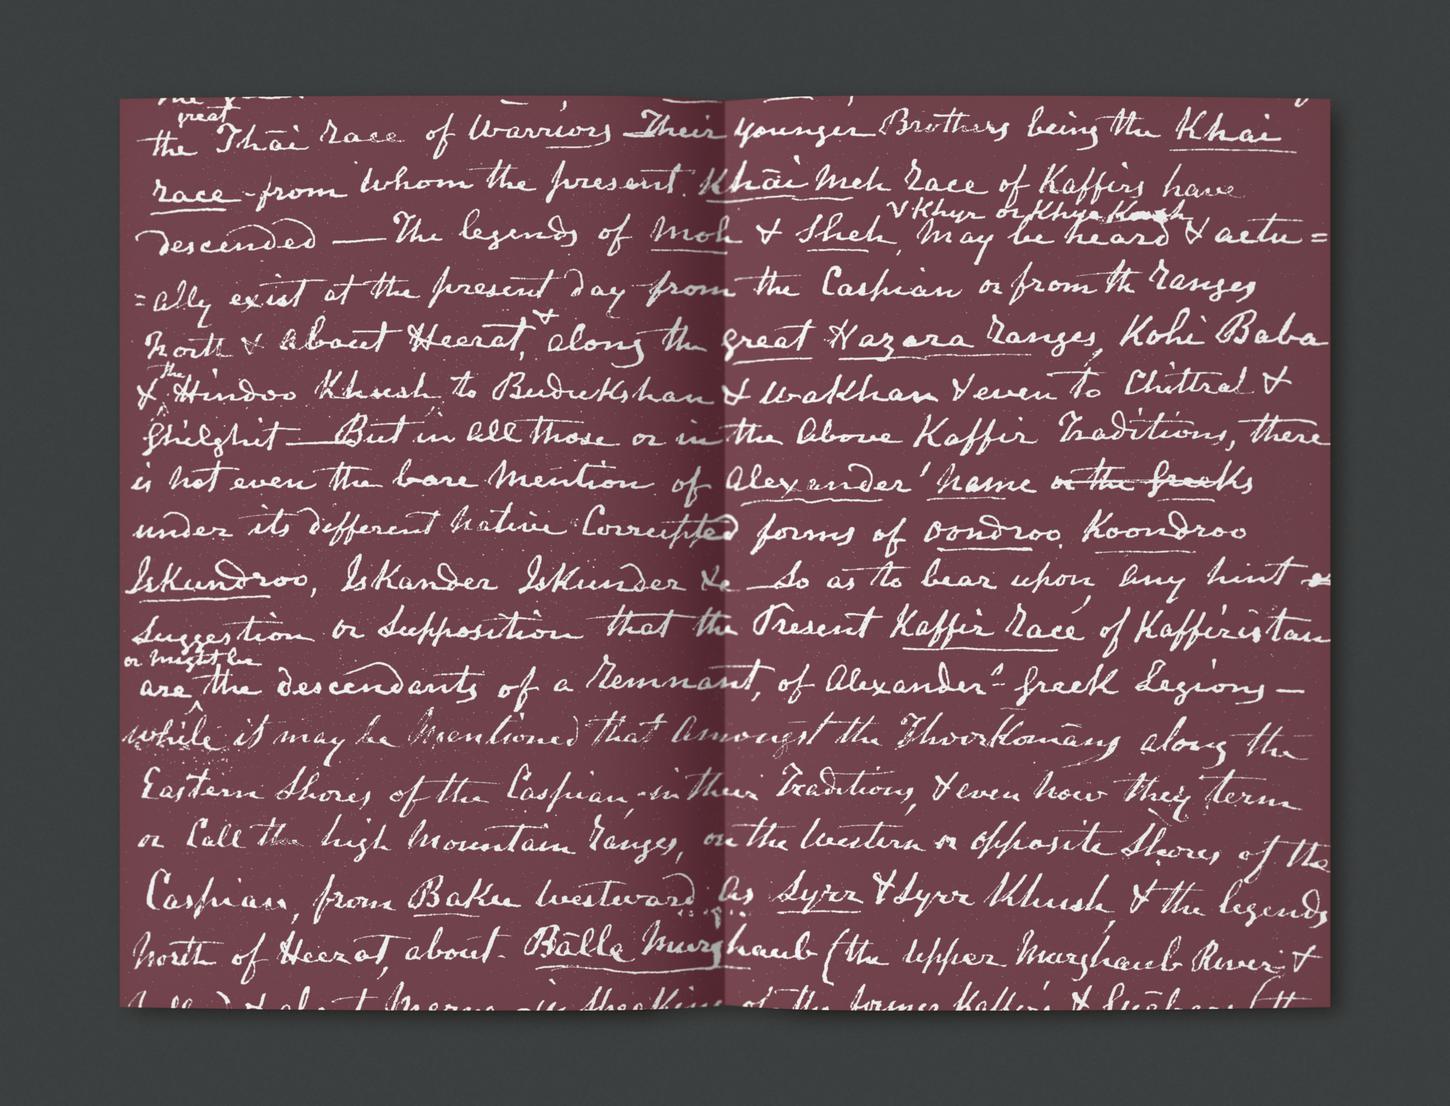 great
the Thāi race of Warriors Their younger Brothers being the Khai
race - from whom the present Khāi Meh race of Kaffirs have
& Khyr or Khye
descended — The legends of Moh & Sheh, may be heard & actu =
= ally exist at the present day from the Caspian or from the ranges
North & about Heerat, & along the great Hazara ranges, Kohi Baba
the
& Hindoo Khush to Budukshan & Wakhan & even to Chittral &
Ghilghit — But in all those or in the above Kaffir Traditions, there
is not even the bare mention of Alexander' name or the Greeks
under its different native Corrupted forms of Oondroo, Koondroo
Iskundroo, Iskander Iskunder &c — So as to bear upon, any hint or
Suggestion or Supposition that the Present Kaffir race of Kaffiristan
or might be
are the descendants of a remnant, of Alexanders Greek Legions —
while it may be mentioned that amongst the Thoorkomāns along the
Eastern Shores of the Caspian, in their Traditions, & even now they term
or Call the high Mountain ranges, on the Western or opposite Shores of the
Caspian, from Baku westward as Syrr & Syrr Khush, & the legends
North of Heerat, about - Bālla Murghaub (the upper Murghaub River &
of the former Kaffirs &